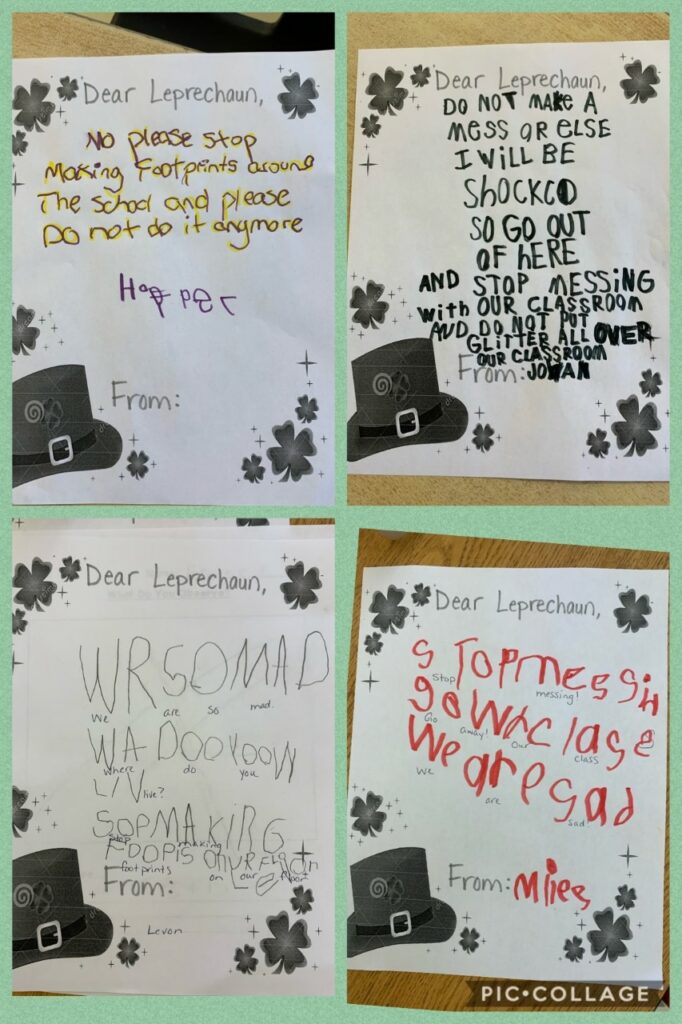 Dear Leprechaun,
No please stop
Making footprints around
The school and please
Do not do it anymore
Harper
From:
Dear Leprechaun,
DO NOT MAKE A
MESS OR ELSE
I WILL BE
SHOCKCD
SO GO OUT
OF HERE
AND STOP MESSING
with OUR CLASSROOM
AND DO NOT PUT
GLITTER ALL OVER
OUR CLASSROOM
From: JOWAN
Dear Leprechaun,
WR SO MAD
We are so mad.
WA DOO YOOW
Where do you
LIV live?
SOP MAKING
Stop making
FDOPIS ON
footprints on our floor
From:
Levon
Dear Leprechaun,
STOP messin
Stop messing!
go
Go away! Our class
We are sad
We are sad!
From: Mlies
PIC•COLLAGE